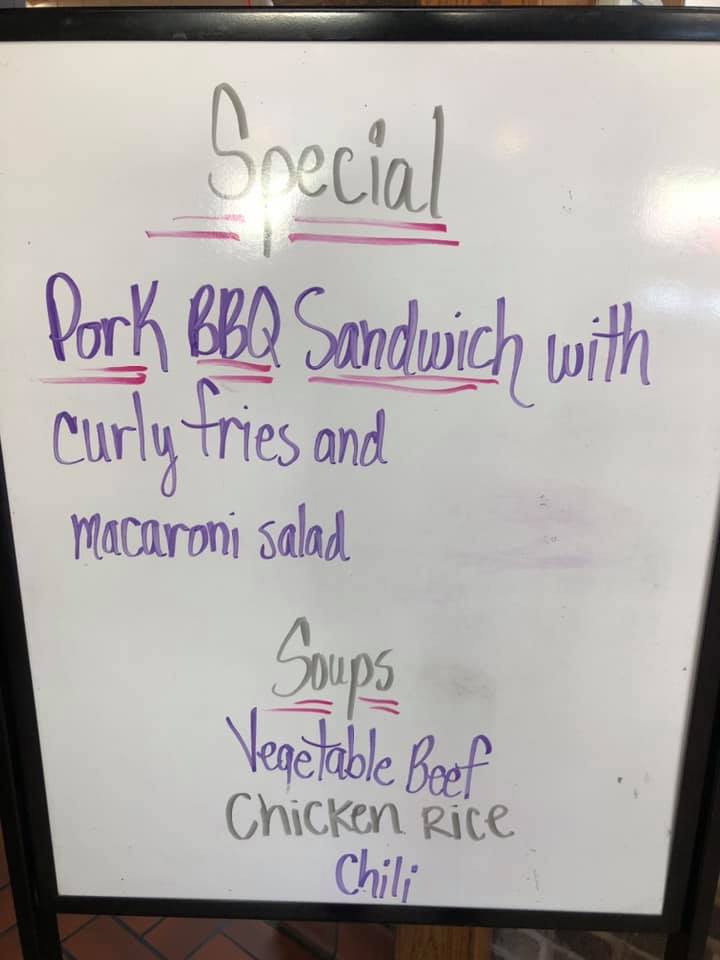 Special
Pork BBQ Sandwich with
curly fries and
macaroni salad
Soups
Vegetable Beef
Chicken Rice
Chili